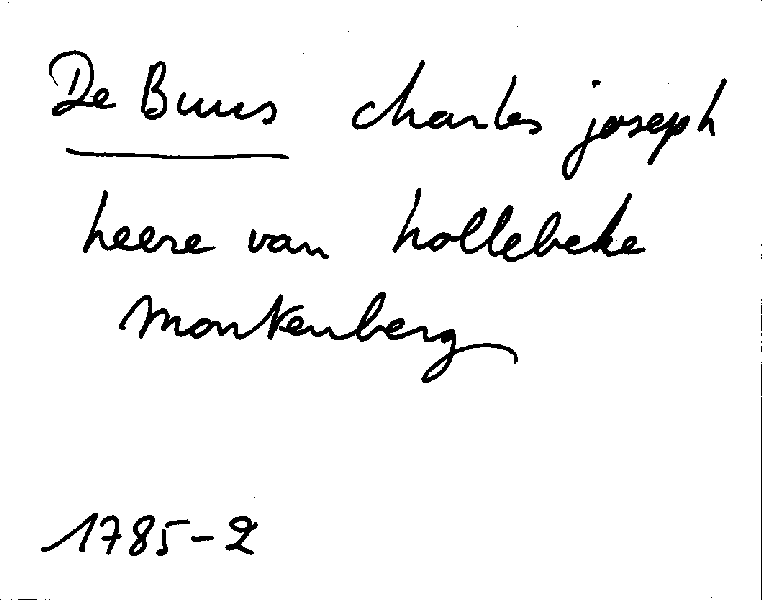 De Buus charles joseph
heere van hollebeke
Monkenberg
1785-2